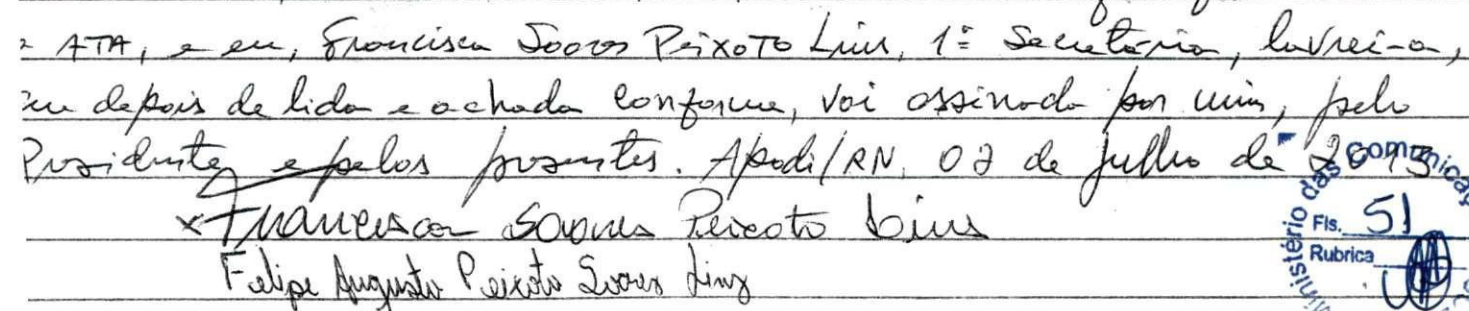 ATA, e eu, Francisca Soares Peixoto Lins, 1ª Secretária, lavrei-a,
que depois de lida e achada conforme, vai assinada por mim, pelo
Presidente e pelos presentes. Apodi/RN, 02 de julho de 2013
x Francisca Soares Peixoto Lins
Felipe Augusto Peixoto Soares Lins
Ministério das Comunicaç
Fls. 51
Rubrica